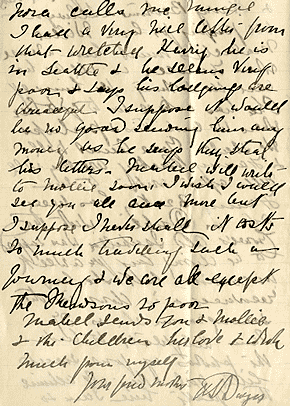 Nora calls me
I had a very nice letter from
that wretched Henry he is
in Seattle & he seems very
poor & says his lodgings are
I suppose it would
be no good sending him any
money as he says they steal
his letters. Mabel will write
to Mollie soon I wish I could
see you all once more but
I suppose I never shall it costs
so much travelling such a
journey & we are all except
the Thomsons so poor
Mabel sends you & Mollie
& the children her love & with
much from myself
your fond mother